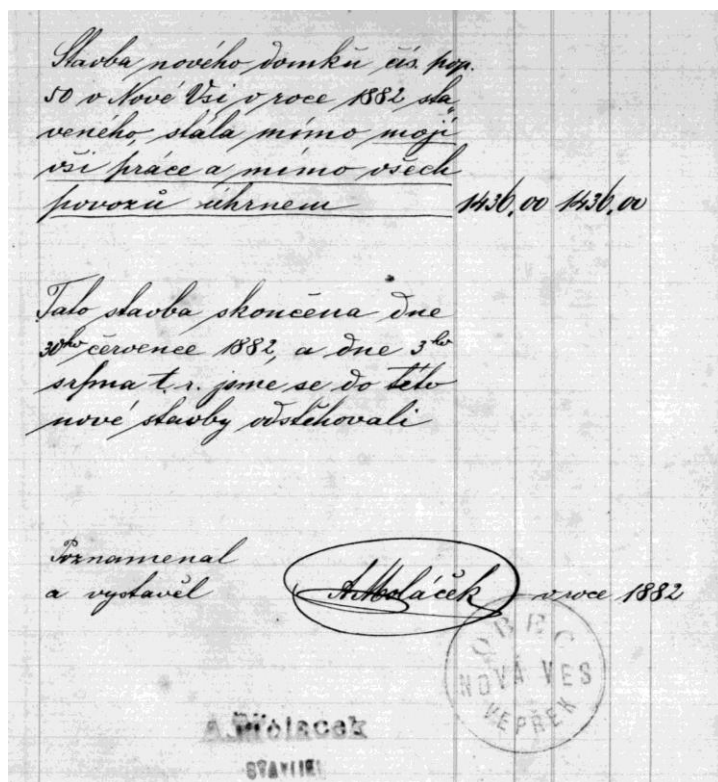 Stavba nového domku čís. pop.
50 v Nové Vsi v roce 1882 sta„
veného, stála mimo mojí
vší práce a mimo všech
povozů úhrnem 1436,00 1436,00
Tato stavba skončena dne
30ho července 1882, a dne 3ho
srpna t. r. jsme se do této
nové stavby odstěhovali
Poznamenal
a vystavěl A. Moláček v roce 1882
OBEC
NOVÁ VES
VEPŘEK
A. Moláček
STAVITEL